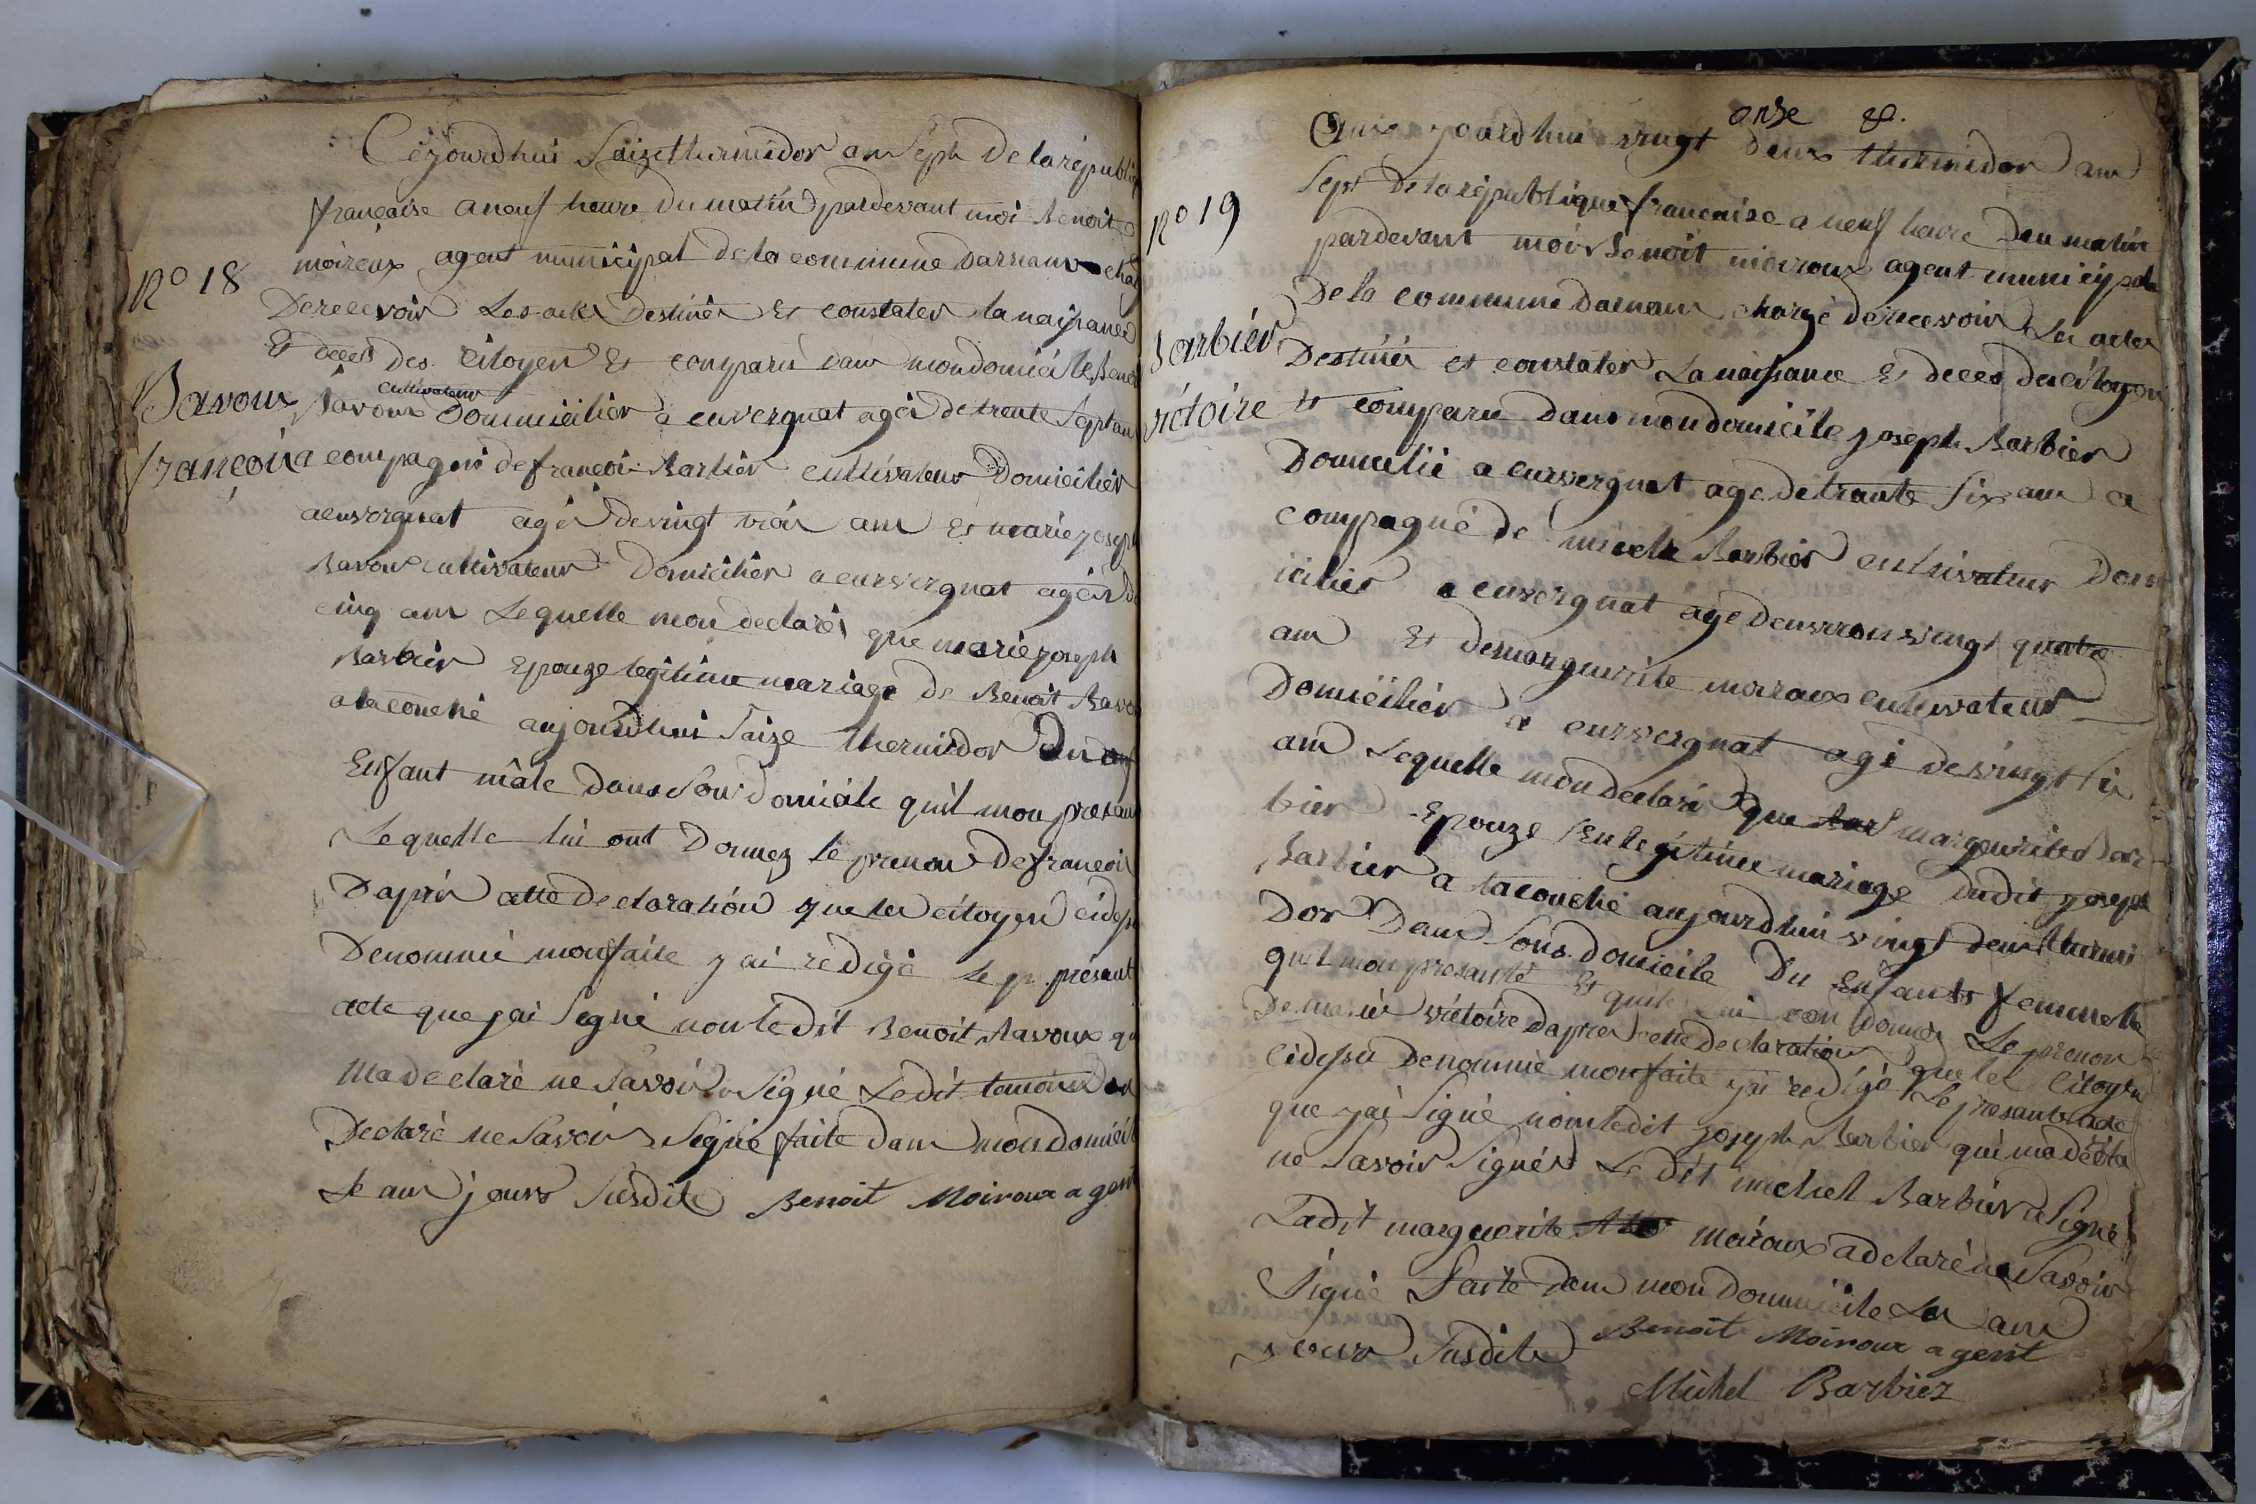 Cejourdhui Saize thermidor an Sept De la républi
françoise a neuf heure Du matin pardevant moi Benoit
N° 18
moiroux agent municipal de la commune Darnans
De recevoir Les acte Destiner Et constater la naissance
Et deces des citoyen Et comparu dans mon domicile Benoi
Bavoux
françois
cultivateur
Bavoux Dommicilier a euvergnat agér de trente Sept ans
a compagné de françoi Barbier cultivateur Domicilier
a euvergnat agér de vingt troi ans Et marie joseph
Bavoux cultivateur Domicilier a eurvergnat agér de
cinq ans Lequelle mon declarér que marie joseph
Barbier Epouze legitime mariage de Benoit Bavou
a lacouché aujourdhui Saize thermidor Du
Enfant mâle Dans Son Domicile quil mon presan
Lequelle lui ont Donnez le prenon De françoi
Daprér cette declaration que les citoyen cidess
Denommé mon faite j ai redigé le pr présant
acte que jai Signé non le dit Benoit Bavoux qu
Ma declaré ne Savoir Signé Ledit temoin on
Declaré ne Savoir Signé faite dans mon Domicile
Le ans jours Susdite Benoit Moiroux agent
onze 8.
aujourdhui vingt Deux thermidor an
Sept De la république française a neuf heure Deu matin
N° 19
pardevant moi Benoit moiroux agent municipal
De la commune Darnans chargé de recevoir Les actes
Barbier
victoire
Destiner et constater La naissance Et deces des citoyen
Et comparu Dans mon domicile joseph Barbier
Domicilié a eurvergnat age de trante Six ans a
compagné de michelr Barbier cultivateur Dom
icilier a euvergnat age denvron vingt quatre
ans Et de marguerite moiroux cultivateur
Domicilier a eurvergnat agé de vingt Six
ans Lequelle mon declaré que marguerite Bar
bier Epouze en legitime mariage dudit joseph
Barbier a lacouché aujourdhui vingt deux thermi
Dor Dans Sons domicile Du Enfants femmelle
quil mon presanté Et quils lui con donner Le prenon
De marie victoire Dapres cette declaration que les citoyen
cidessu Denommé mon faite jai redigé Le presant acte
que jai Signé nom ledit joseph Barbier qui ma décla
ne Savoir Signér Le dit michel Barbier a Signé
Ladit marguerite moiroux a declaré ne Savoir
Signé Faite dans mon Dommicile Les ans
jours Susdite Benoit Moiroux agent
Michel Barbier